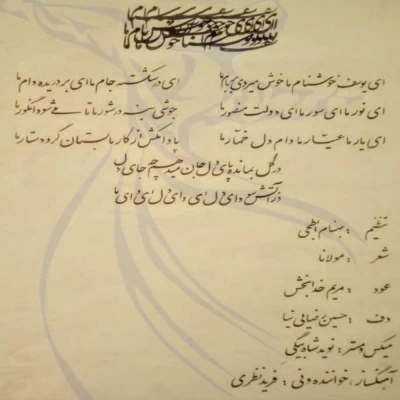 ای یوسف خوشنام ما خوش میروی بر بام ما ای در شکسته جام ما ای بر دریده دام ما
ای نور ما ای سور ما ای دولت منصور ما جوشی بنه در شور ما تا می شود انگور ما
ای یار ما عیار ما دام دل خمار ما پا وامکش از کار ما بستان گرو دستار ما
در گل بمانده پای دل جان میدهم چه جای دل
در آتش سودای دل ای وای دل ای وای ما
تنظیم : بهنام ابطحی
شعر : مولانا
عود : مریم خدابخش
دف : حسین رضایی نیا
میکس و مستر : نوید شاه بیگی
آهنگساز ، خواننده و نی : فرید نظری